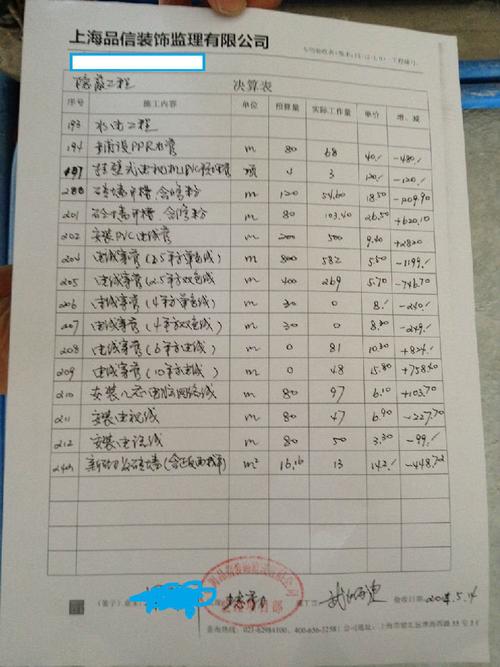 上海品信装饰监理有限公司
隐蔽工程 决算表
序号 施工内容 单位 预算量 实际工作量 单价 增、减
193 水电工程
194 PPR水管 m 80 68 40.- -480.-
197 项 4 3 120.- -120.-
200 砖墙开槽 含修粉 m 120 54.60 18.50 -1209.90
201 砼墙开槽 含修粉 m 80 103.40 26.50 +620.10
202 安装PVC电线管 m 200 500 9.40 +2820
204 电线穿管(2.5平方单色线) m 800 582 5.50 -1199.-
205 电线穿管(2.5平方双色线) m 400 269 5.70 -746.70
206 电线穿管(4平方单色线) m 30 0 8.- -240.-
207 电线穿管(4平方双色线) m 30 0 8.30 -249.-
208 电线穿管(6平方电线) m 0 81 10.30 +834.-
209 电线穿管(10平方电线) m 0 48 15.80 +758.40
210 安装八芯电脑网络线 m 80 97 6.10 +103.70
211 安装电视线 m 80 47 6.90 -227.70
212 安装电话线 m 80 50 3.30 -99.-
新砌 砖墙 m² 16.16 13 142.- -448.72
验收日期: 5.14